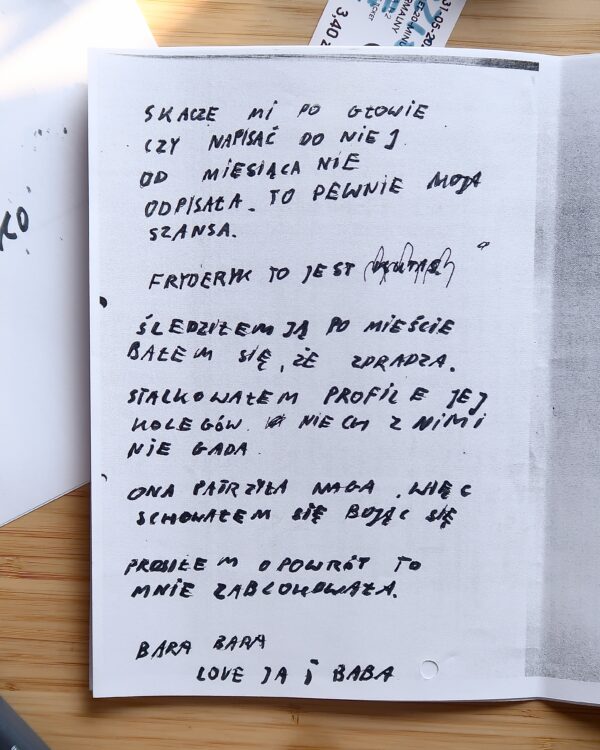 31-05-20
20-MINU
NORMALNY
3,40 zł
KO
SKACZE MI PO GŁOWIE
CZY NAPISAĆ DO NIEJ
OD MIESIĄCA NIE
ODPISAŁA. TO PEWNIE MOJA
SZANSA.
FRYDERYK TO JEST
ŚLEDZIŁEM JĄ PO MIEŚCIE
BAŁEM SIĘ, ŻE ZDRADZA.
STALKOWAŁEM PROFILE JEJ
KOLEGÓW. NIECH Z NIMI
NIE GADA.
ONA PATRZYŁA NAGA, WIĘC
SCHOWAŁEM SIĘ BOJĄC SIĘ
PROSIŁEM O POWRÓT TO
MNIE ZABLOKOWAŁA.
BARA BARA
LOVE JA i BABA